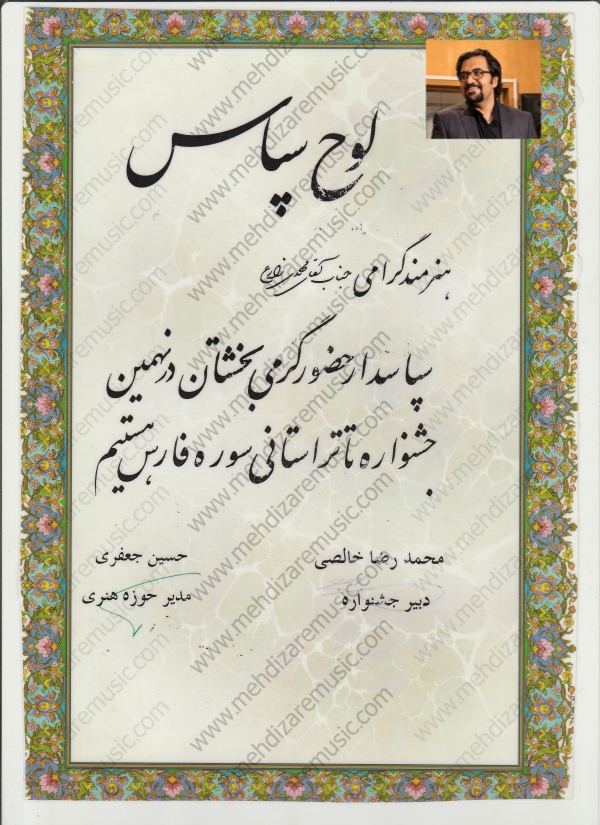 لوح سپاس
هنرمند گرامی جناب آقای مهدی زارع
سپاسدار حضور گرمی بخشتان در نهمین
جشنواره تاتر استانی سوره فارس هستیم
محمد رضا خالصی
دبیر جشنواره
حسین جعفری
مدیر حوزه هنری
www.mehdizaremusic.com